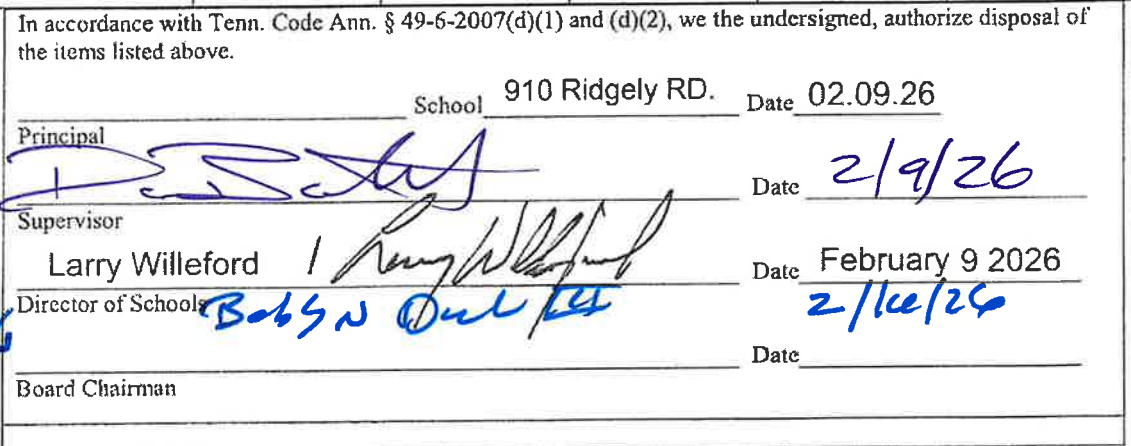 In accordance with Tenn. Code Ann. § 49-6-2007(d)(1) and (d)(2), we the undersigned, authorize disposal of
the items listed above.
School 910 Ridgely RD. Date 02.09.26
Principal
Date 2/9/26
Supervisor
Larry Willeford / Larry Willeford Date February 9 2026
Director of Schools
Date
Board Chairman